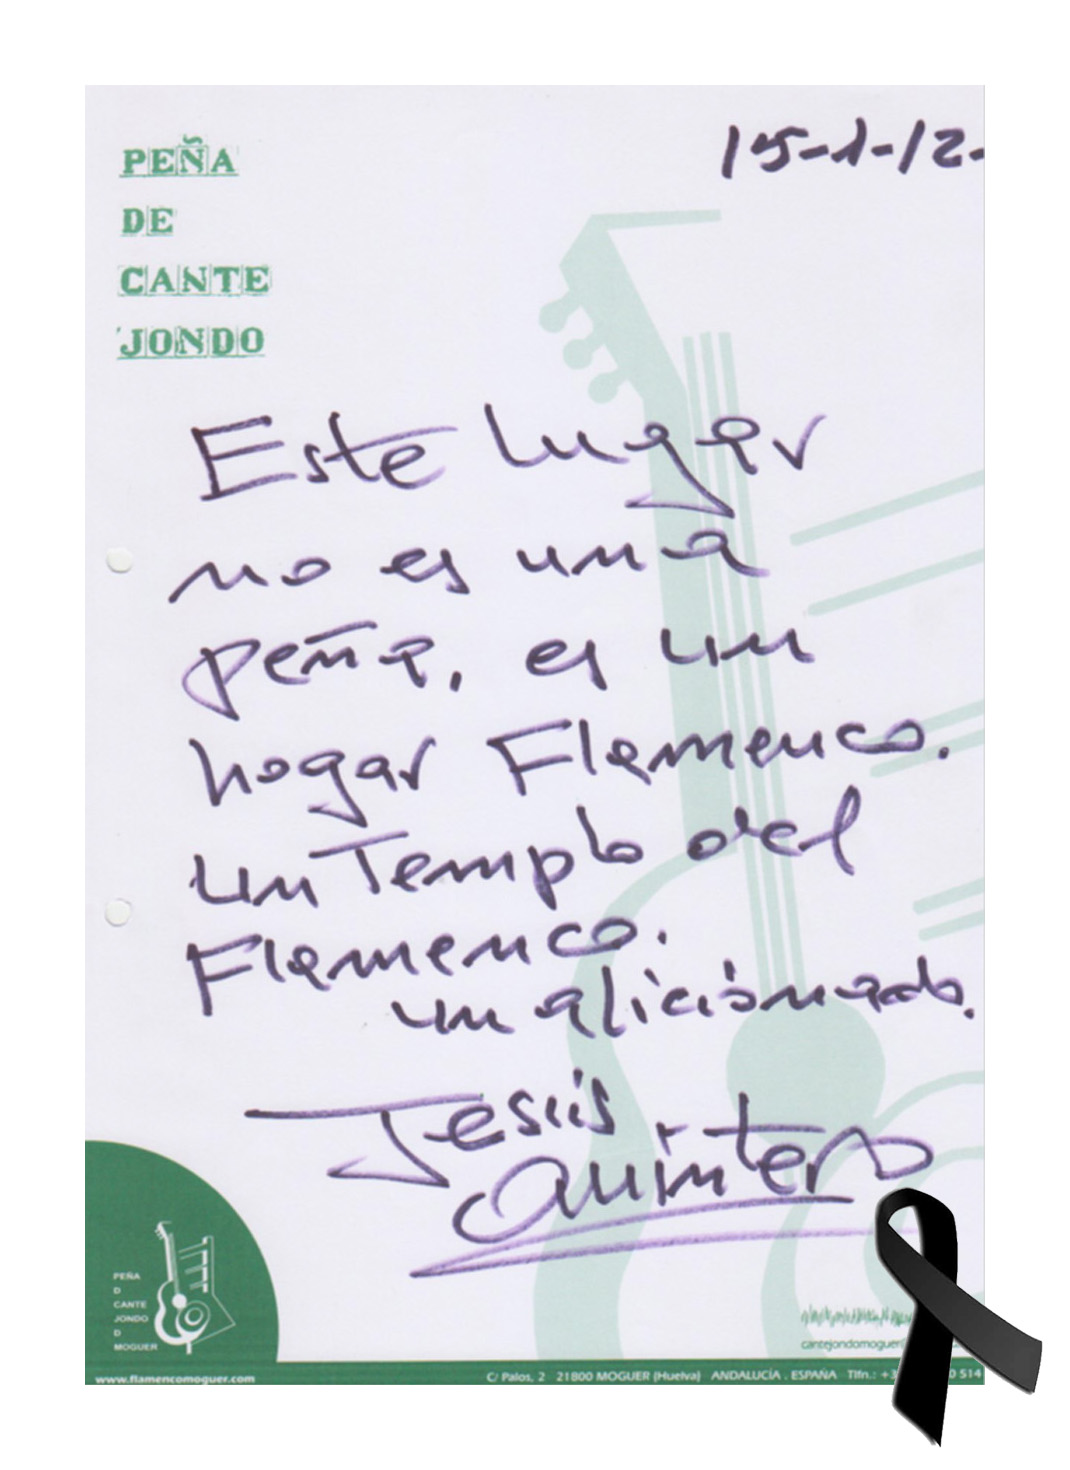 PEÑA
DE
CANTE
JONDO
15-1-12.
Este lugar
no es una
peña, es un
hogar Flamenco.
un Templo del
Flamenco.
un aficionado.
Jesús
Quintero
PEÑA
D
CANTE
JONDO
D
MOGUER
cantejondomoguer
www.flamencomoguer.com
C/ Palos, 2 21800 MOGUER (Huelva) ANDALUCÍA . ESPAÑA Tlfn.: +3 0 514